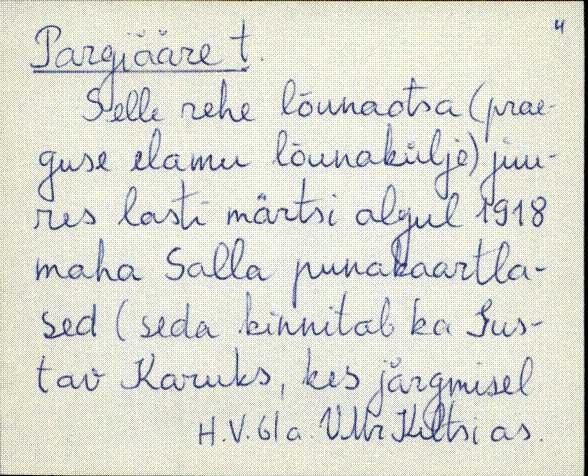 4
Pargiääre t.
Selle rehe lõunaotsa (prae-
guse elamu lõunakülje) juu-
res lasti märtsi algul 1918
maha Salla punakaartla-
sed (seda kinnitab ka Gus-
tav Karuks, kes järgmisel
H.V. 61a. VMr Kiltsi as.